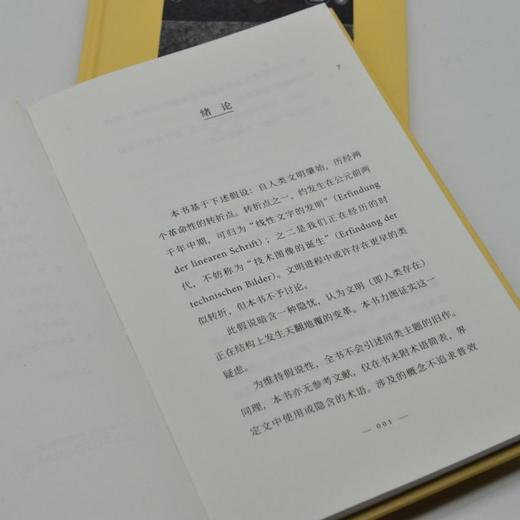 绪 论
本书基于下述假设：自人类文明肇始，历经两
个革命性的转折点。转折点之一，约发生在公元前两
千年中期，可归为“线性文字的发明”（Erfindung
der linearen Schrift）；之二是我们正在经历的时
代，不妨称为“技术图像的诞生”（Erfindung der
technischen Bilder）。文明进程中或许存在更早的类
似转折，但本书不予讨论。
此假说暗含一种隐忧，认为文明（即人类存在）
正在结构上发生天翻地覆的变革。本书力图证实这一
疑虑。
为维持假说性，全书不会引述同类主题的旧作。
同理，本书亦无参考文献，仅在书末附术语简表，界
定文中使用或隐含的术语。涉及的概念不追求普效
— 001 —